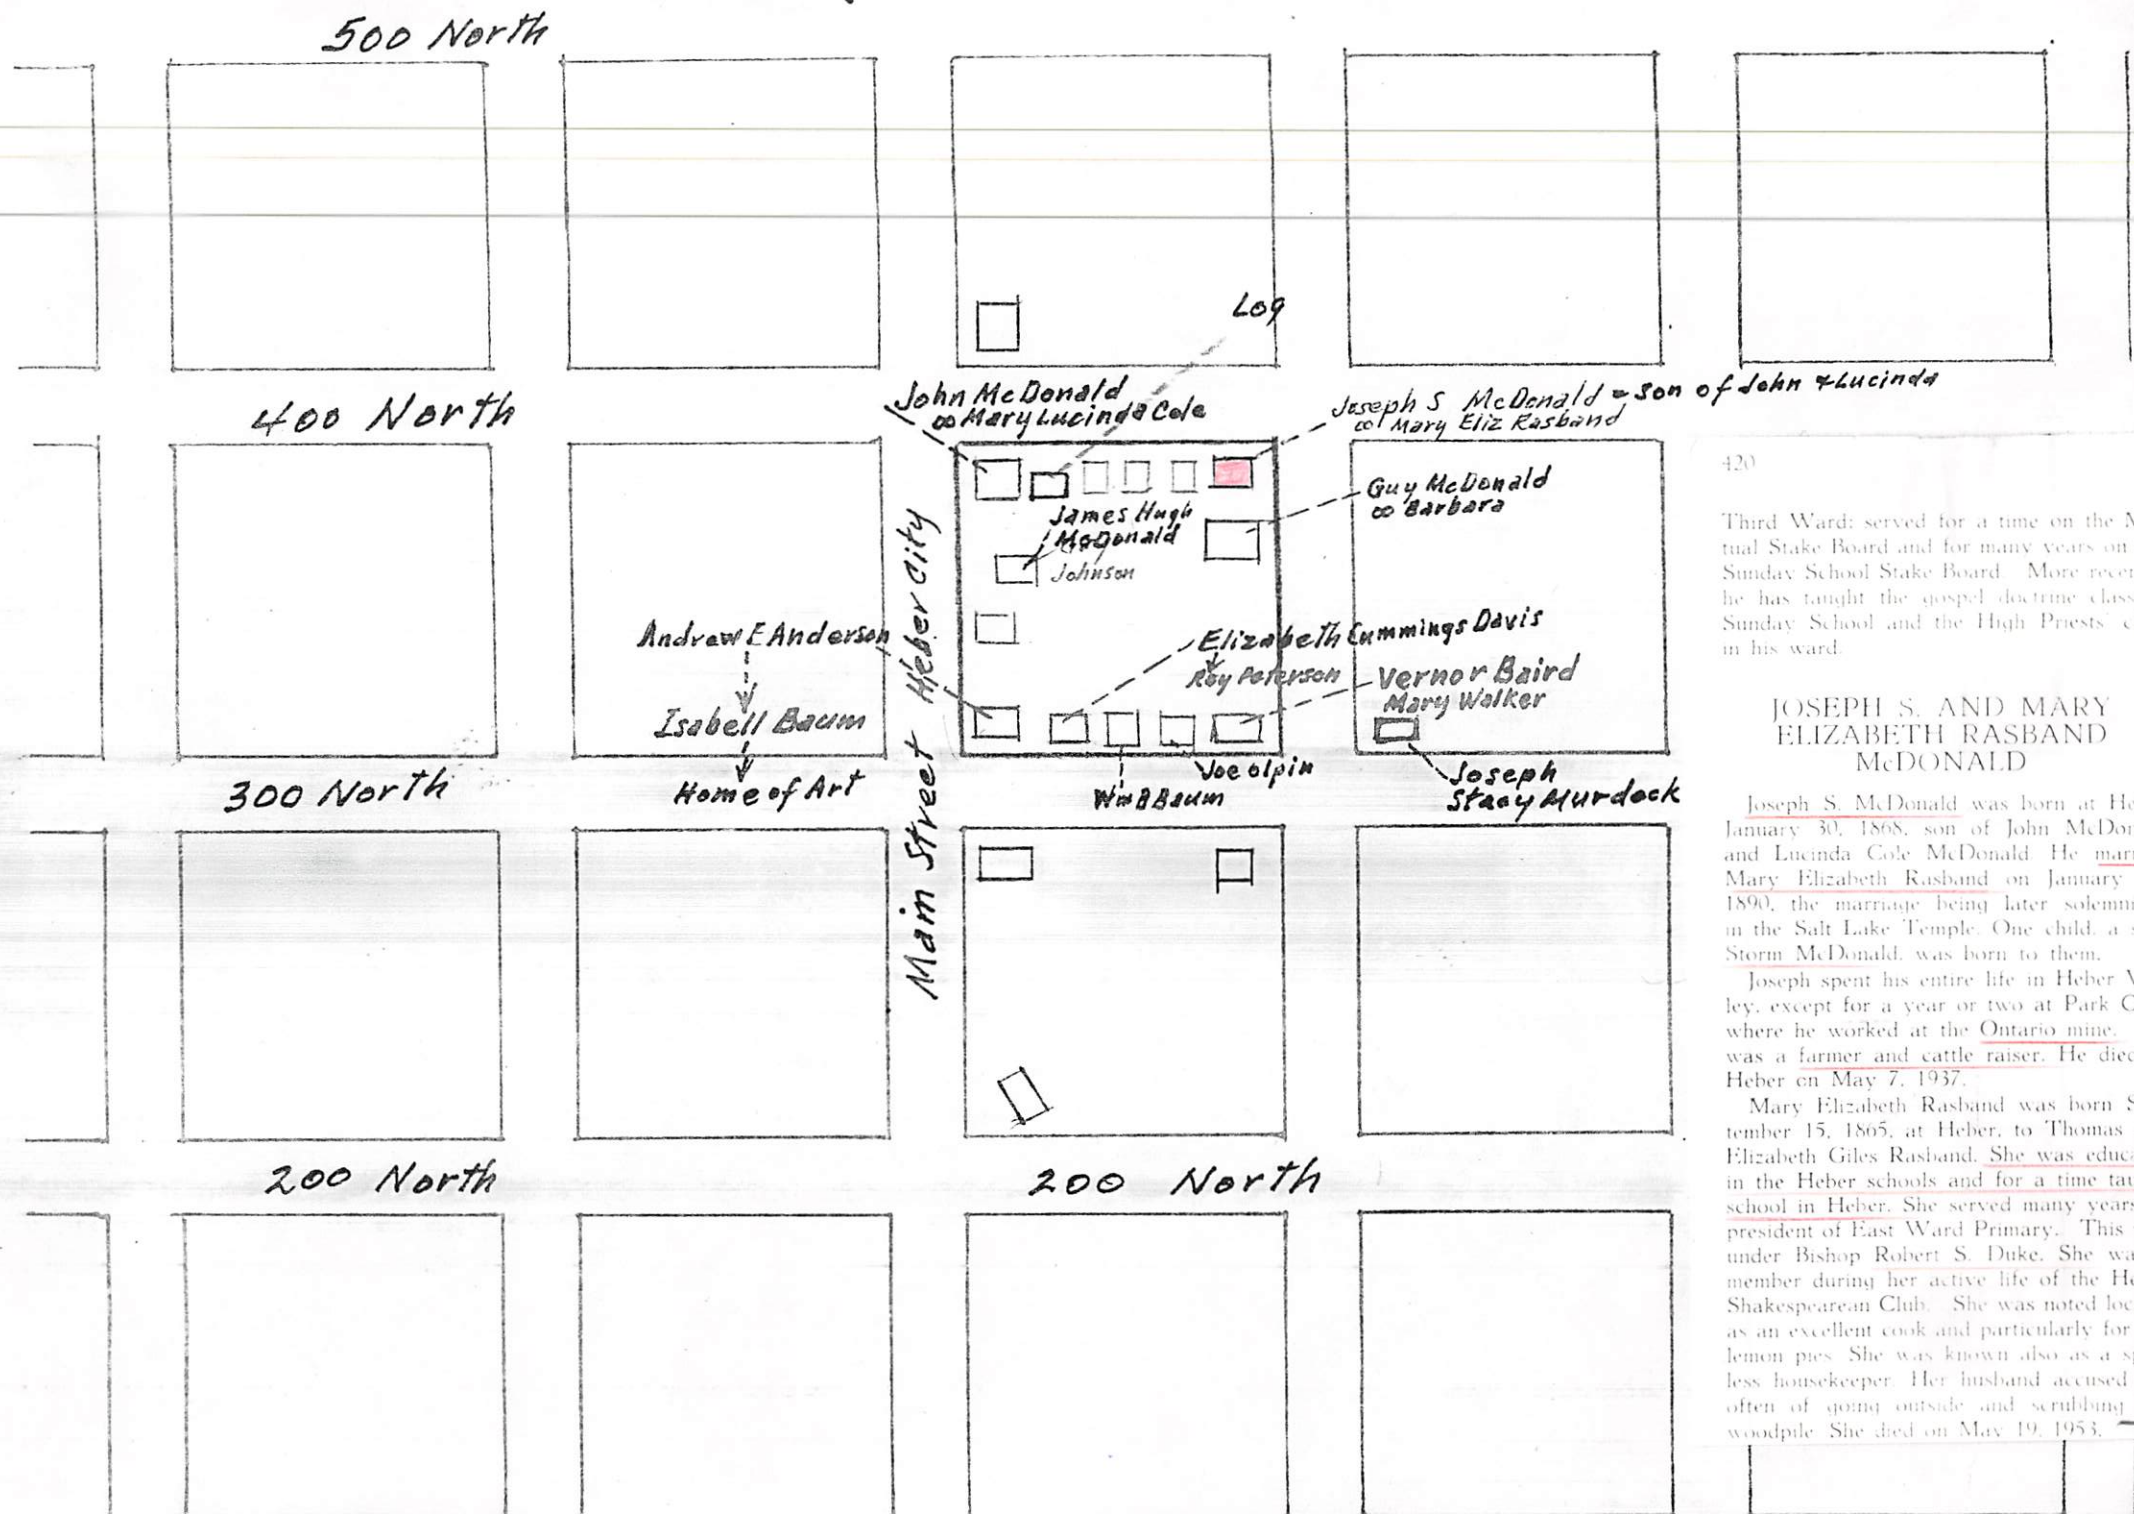 500 North
Log
400 North
John McDonald
∞ Mary Lucinda Cole
Joseph S McDonald = son of John & Lucinda
∞ Mary Eliz Rasband
Guy McDonald
∞ Barbara
James Hugh
McDonald
Johnson
Main Street Heber City
Andrew E Anderson
Isabell Baum
Home of Art
Elizabeth Cummings Davis
Roy Peterson
Vernor Baird
Mary Walker
Joe Olpin
Wm B Baum
Joseph
Stacy Murdock
300 North
200 North
200 North
420
Third Ward; served for a time on the M
tual Stake Board and for many years on
Sunday School Stake Board. More recen
he has taught the gospel doctrine class
Sunday School and the High Priests' c
in his ward.
JOSEPH S. AND MARY
ELIZABETH RASBAND
McDONALD
Joseph S. McDonald was born at He
January 30, 1868, son of John McDon
and Lucinda Cole McDonald. He marr
Mary Elizabeth Rasband on January
1890, the marriage being later solemni
in the Salt Lake Temple. One child, a s
Storm McDonald, was born to them.
Joseph spent his entire life in Heber V
ley, except for a year or two at Park C
where he worked at the Ontario mine.
was a farmer and cattle raiser. He died
Heber on May 7, 1937.
Mary Elizabeth Rasband was born S
tember 15, 1865, at Heber, to Thomas
Elizabeth Giles Rasband. She was educa
in the Heber schools and for a time tau
school in Heber. She served many years
president of East Ward Primary. This
under Bishop Robert S. Duke. She wa
member during her active life of the He
Shakespearean Club. She was noted loc
as an excellent cook and particularly for
lemon pies. She was known also as a sp
less housekeeper. Her husband accused
often of going outside and scrubbing
woodpile. She died on May 19, 1953.